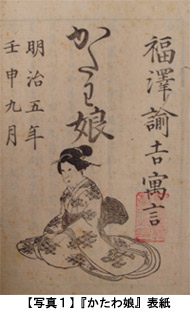 福澤諭吉寓言
かたわ娘
明治五年
壬申九月
【写真1】『かたわ娘』 表紙